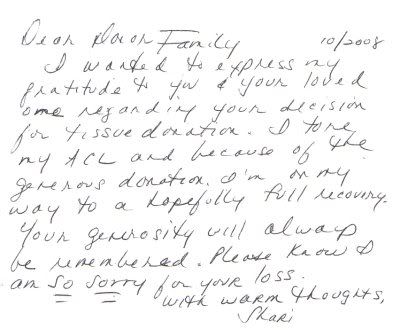 Dear Donor Family 10/2008
I wanted to express my
gratitude to you & your loved
one regarding your decision
for tissue donation. I tore
my ACL and because of the
generous donation. I'm on my
way to a hopefully full recovery.
Your generosity will always
be remembered. Please know I
am so sorry for your loss.
with warm thoughts,
Shari